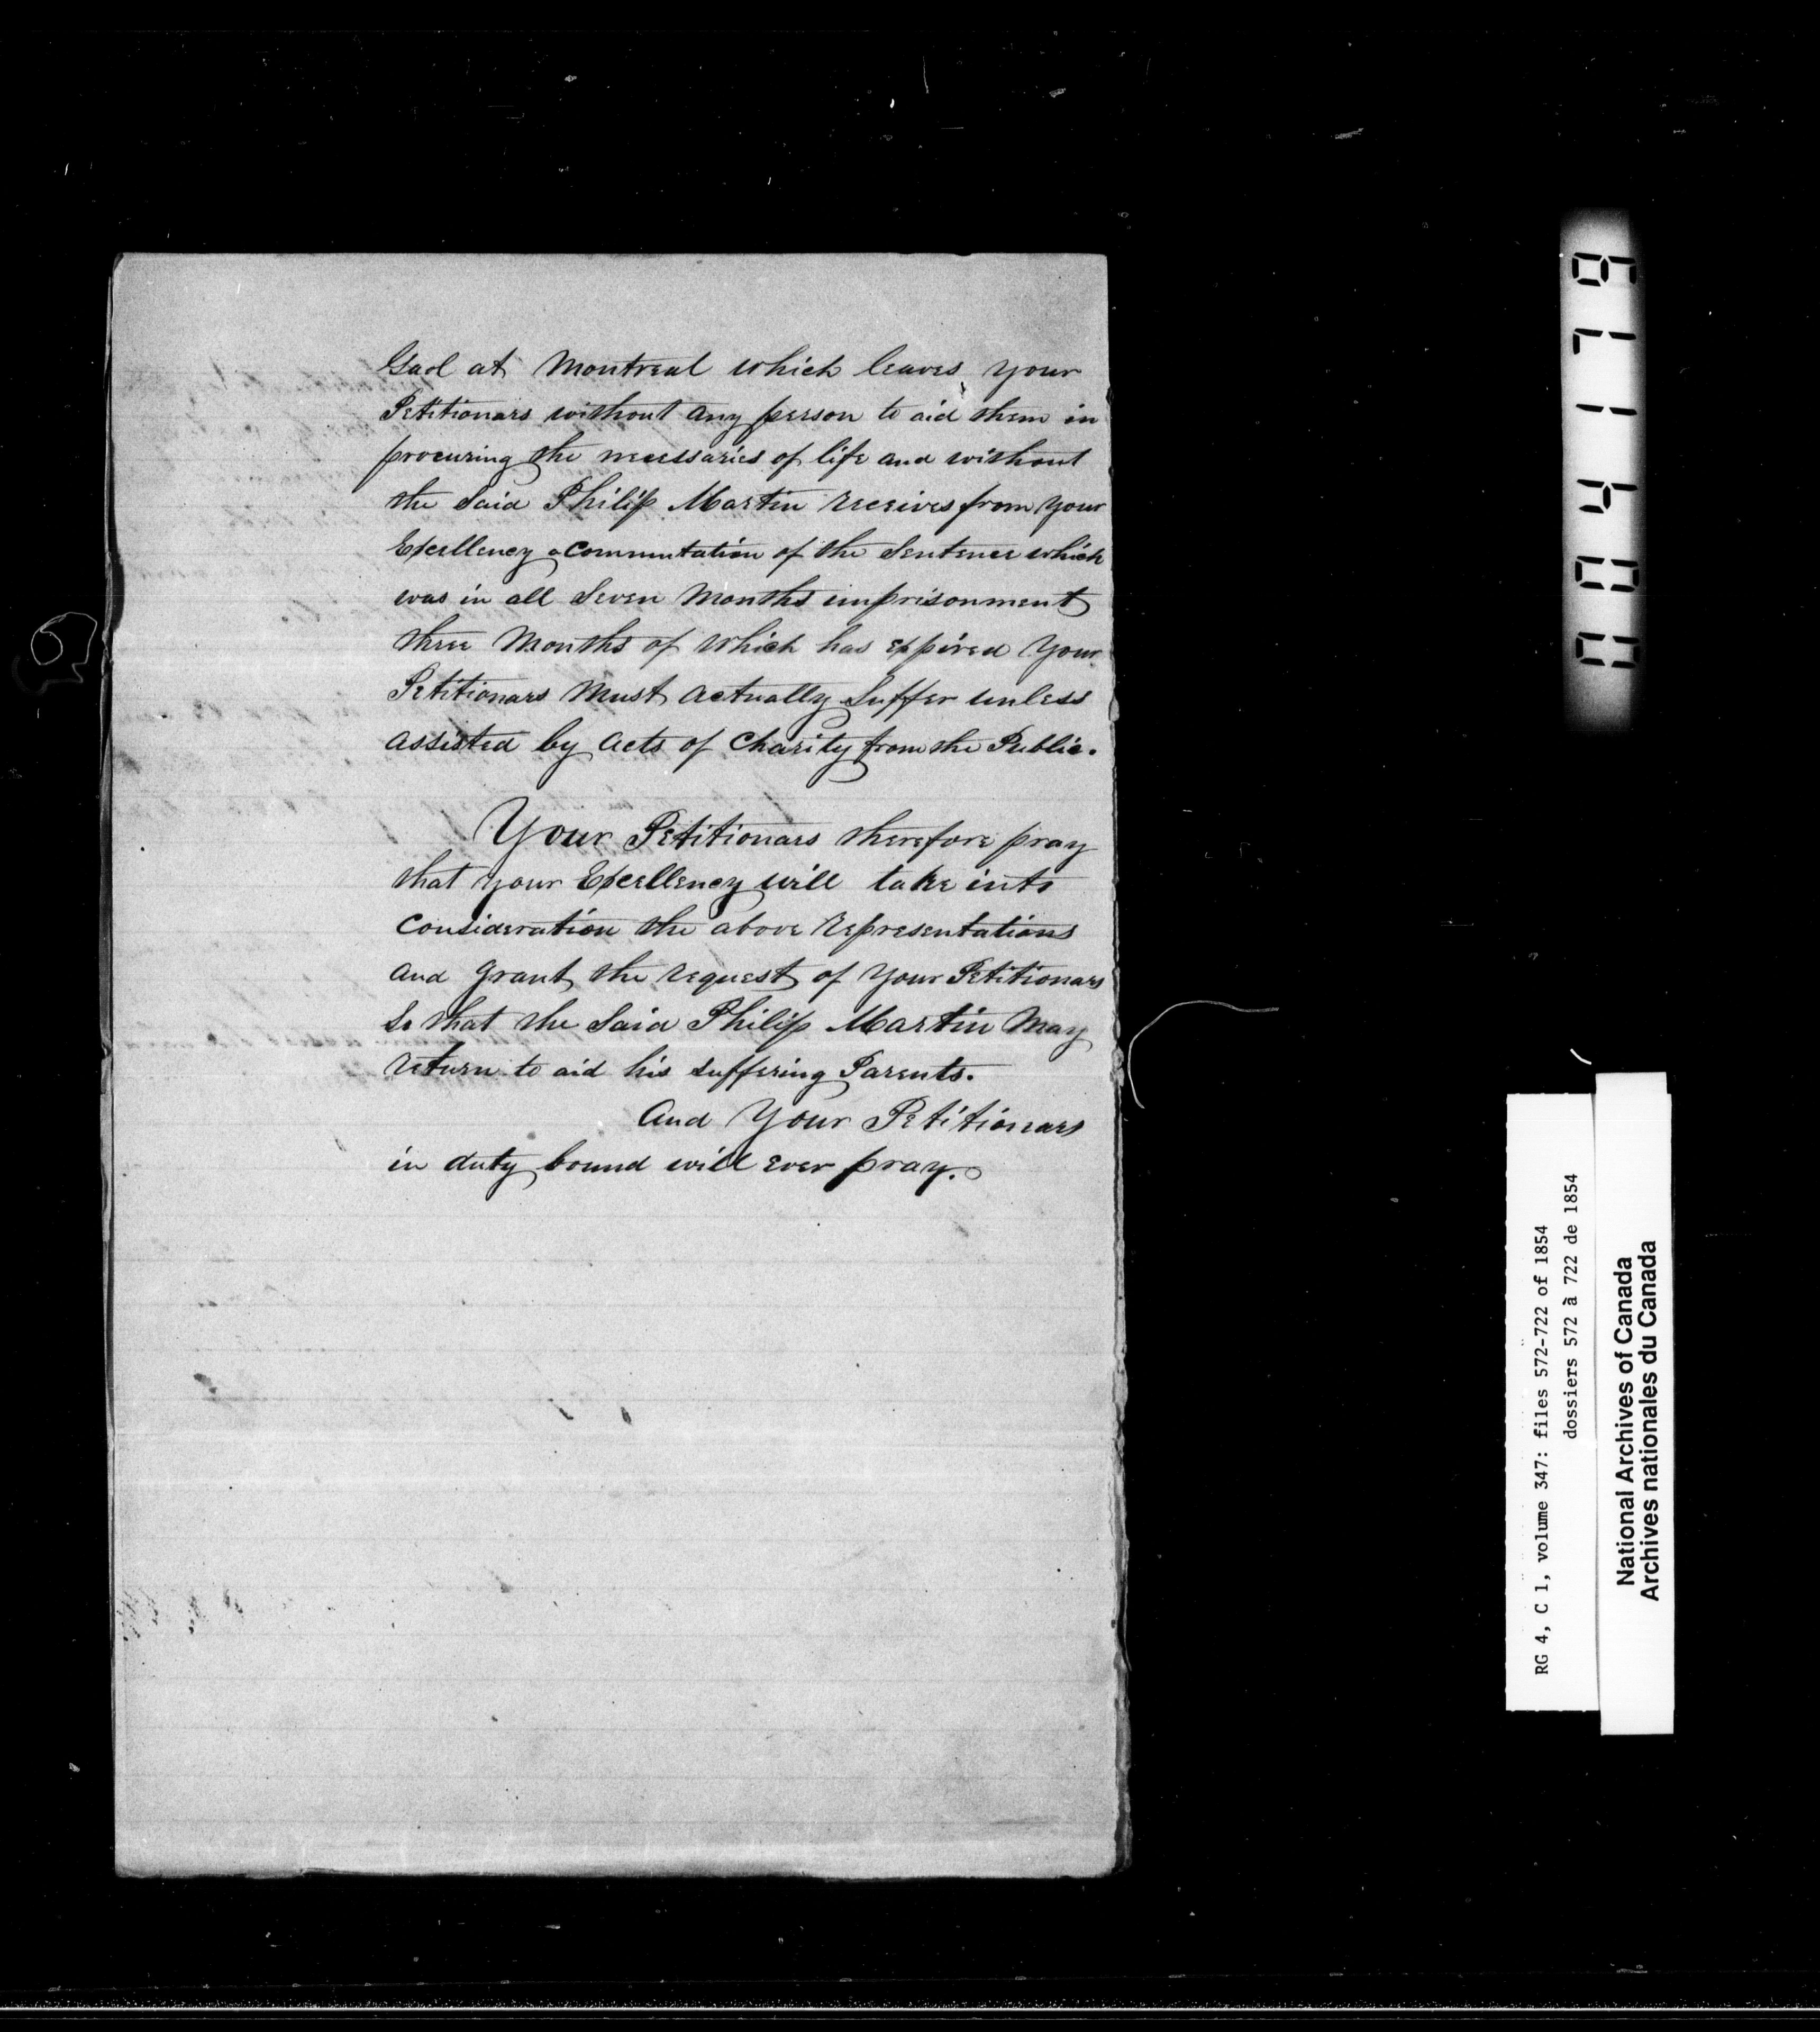 Gaol at Montreal which leaves your
Petitionars without any person to aid them in
procuring the necessaries of life and without
the Said Philip Martin receives from your
Excellency a Commutation of the Sentence which
was in all Seven Months imprisonment
three Months of which has expired Your
Petitionars Must actually Suffer unless
assisted by acts of Charity from the Public.
Your Petitionars therefore pray
that your Excellency will take into
Consideration the above representations
and grant the request of Your Petitionars
So that the Said Philip Martin May
return to aid his suffering Parents.
And Your Petitionars
in duty bound will ever pray.
RG 4, C 1, volume 347: files 572-722 of 1854
dossiers 572 à 722 de 1854
National Archives of Canada
Archives nationales du Canada